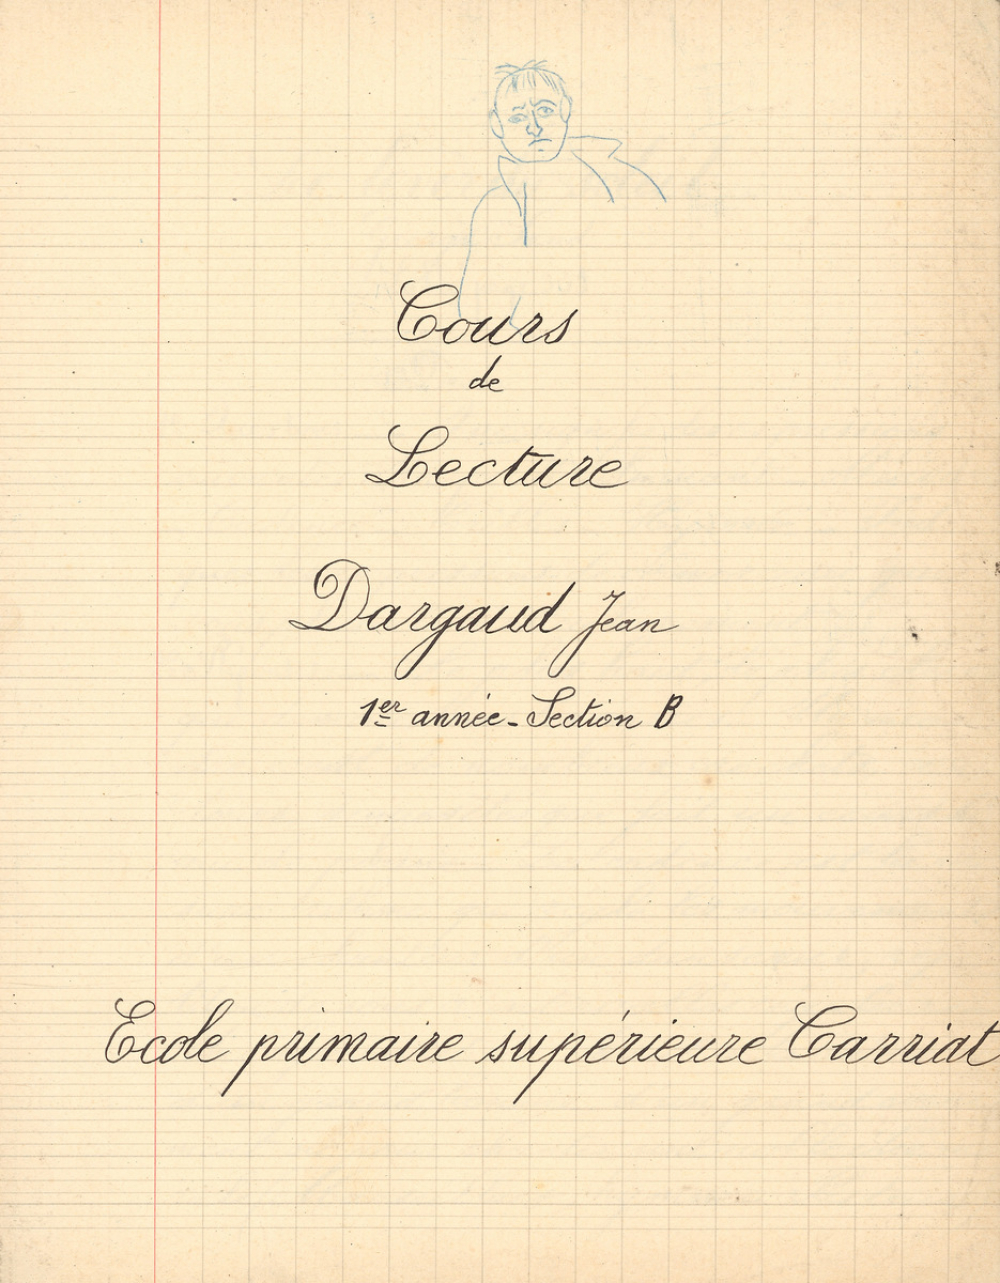 Cours
de
Lecture
Dargaud Jean
1er année - Section B
Ecole primaire supérieure Carriat